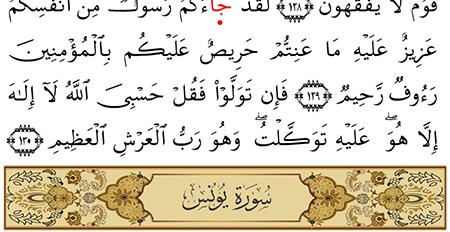 قَوۡمٌ لَّا يَفۡقَهُونَ ١٢٨ لَقَدۡ جَآءَكُمۡ رَسُولٌ مِّنۡ أَنفُسِكُمۡ
عَزِيزٌ عَلَيۡهِ مَا عَنِتُّمۡ حَرِيصٌ عَلَيۡكُم بِٱلۡمُؤۡمِنِينَ
رَءُوفٌ رَّحِيمٌ ١٢٩ فَإِن تَوَلَّوۡاْ فَقُلۡ حَسۡبِيَ ٱللَّهُ لَآ إِلَٰهَ
إِلَّا هُوَۖ عَلَيۡهِ تَوَكَّلۡتُۖ وَهُوَ رَبُّ ٱلۡعَرۡشِ ٱلۡعَظِيمِ ١٣٠
سُورَةُ يُونُس